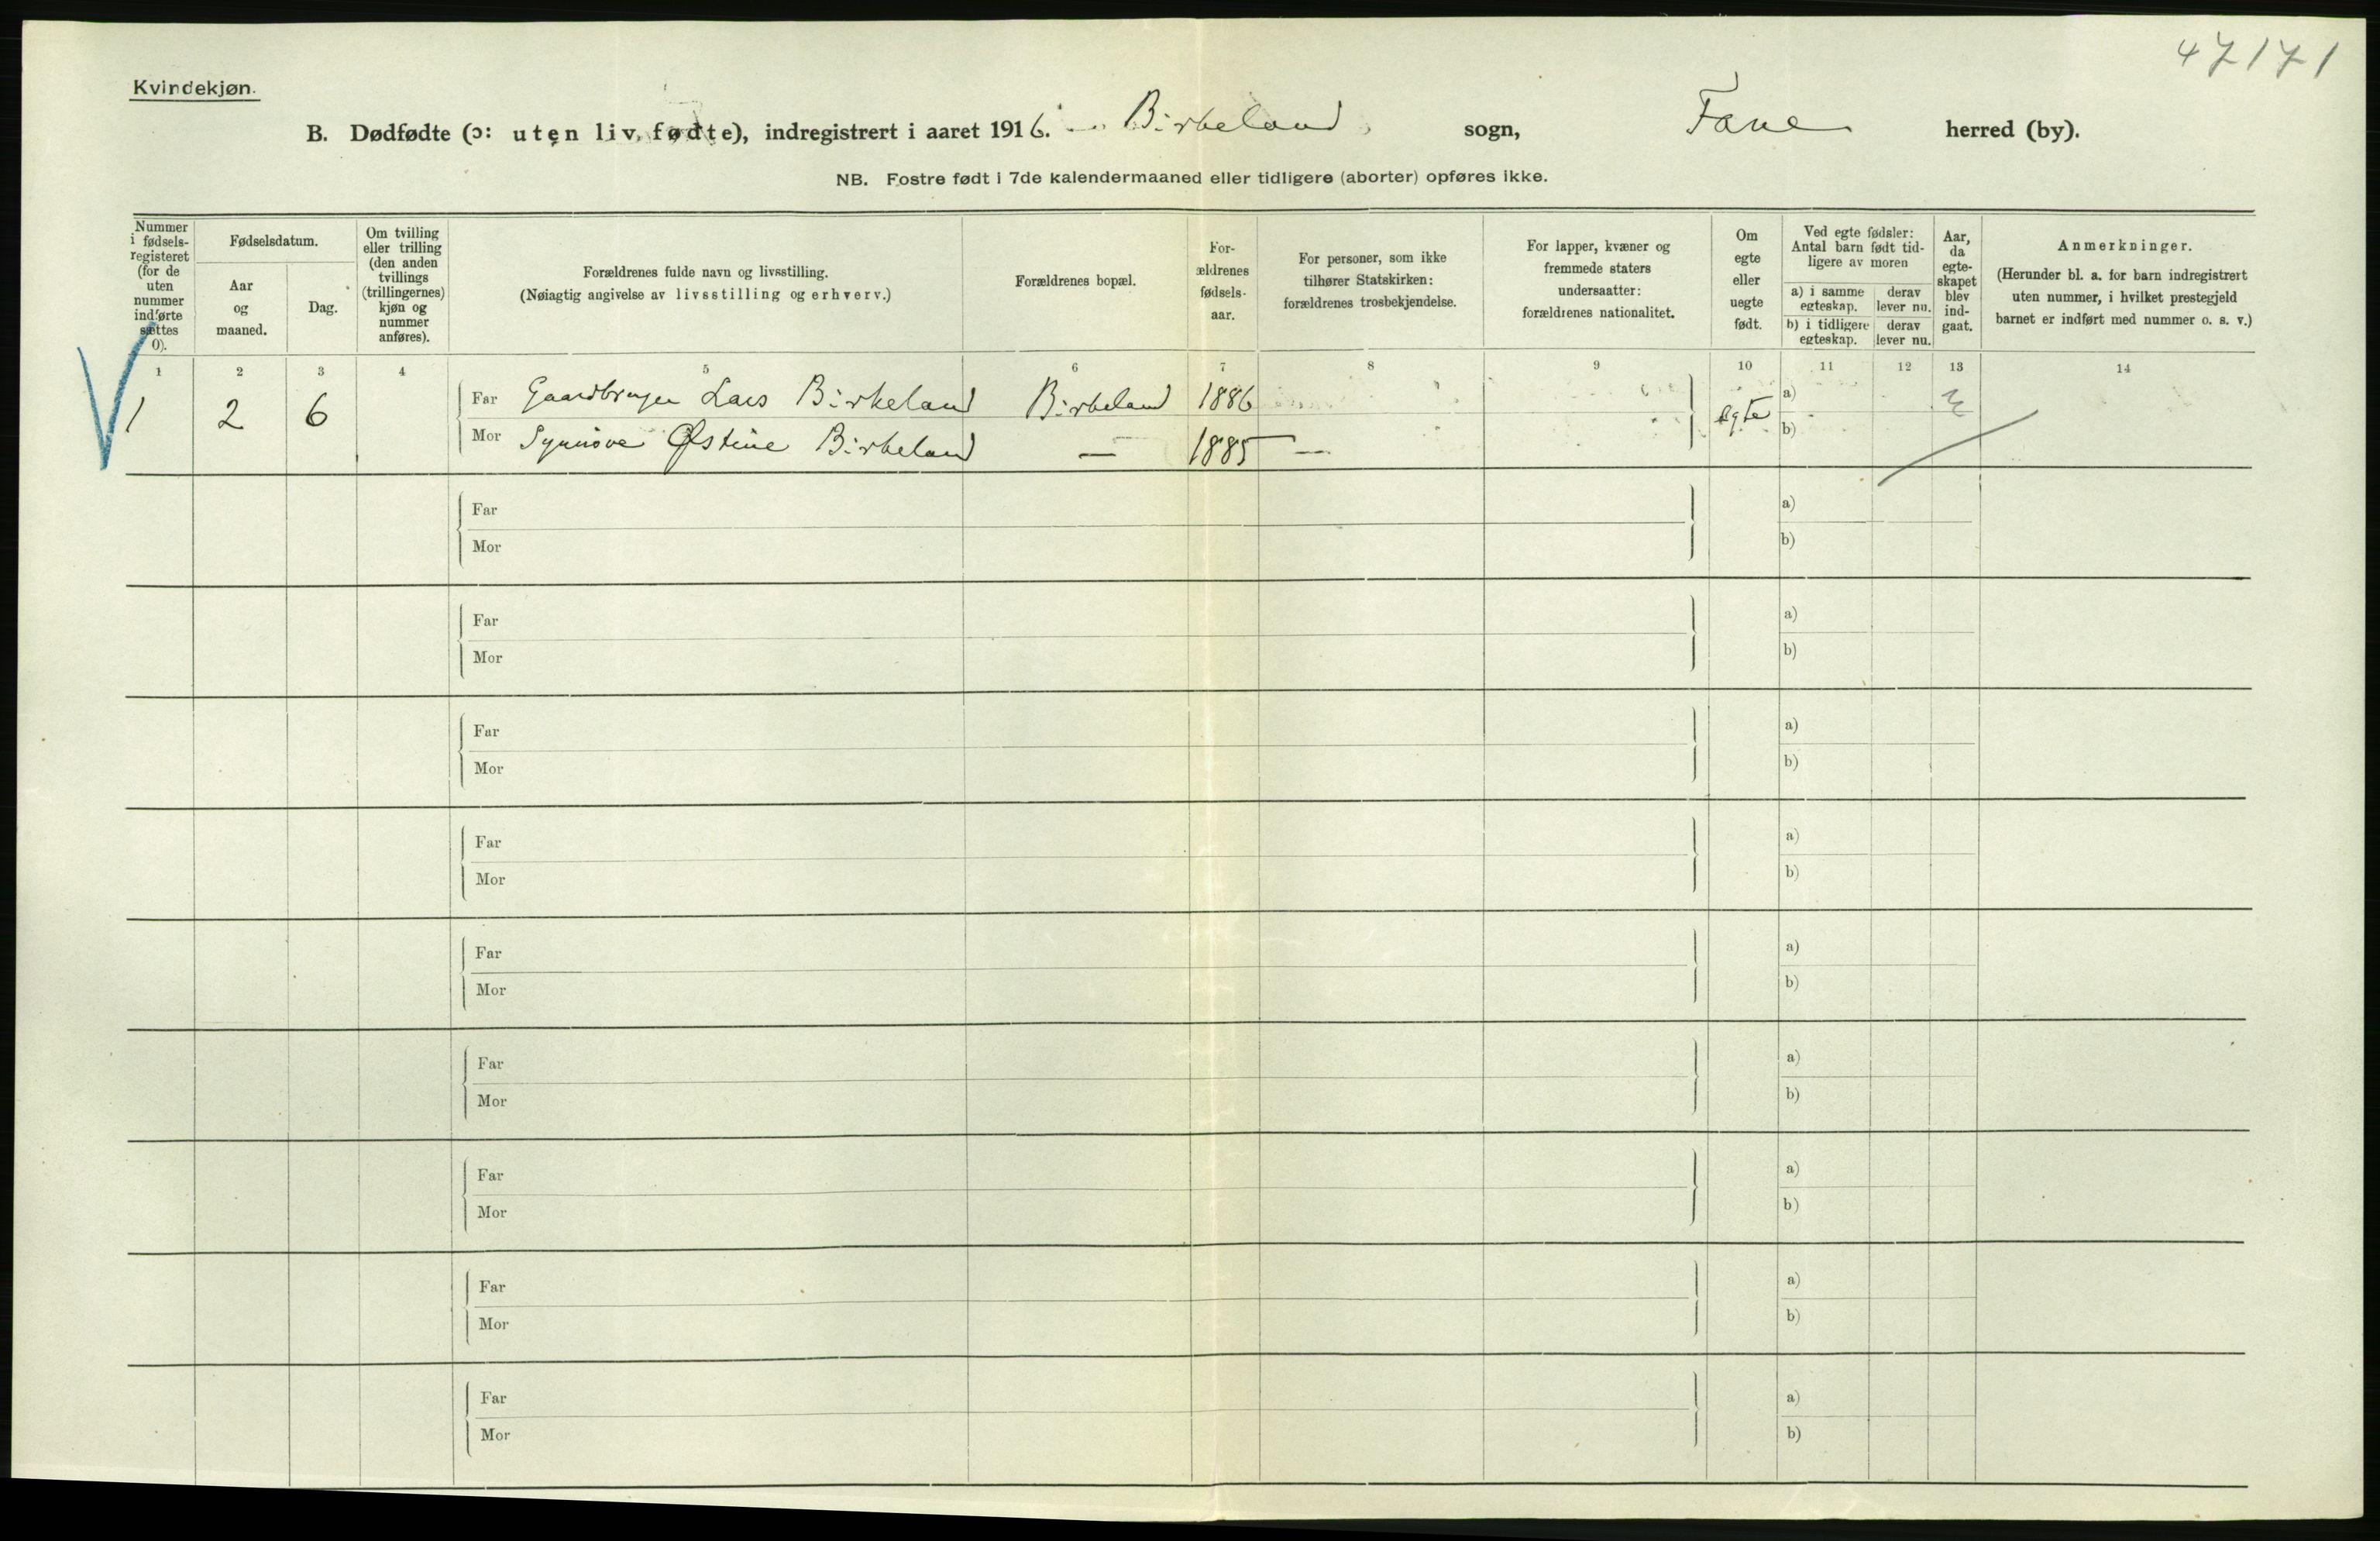 47171
Kvindekjøn.
B. Dødfødte (ɔ: uten liv fødte), indregistrert i aaret 1916. Birkeland sogn, Fane herred (by).
NB. Fostre født i 7de kalendermaaned eller tidligere (aborter) opføres ikke.
Nummer
i fødsels-
registeret
(for de
uten
nummer
indførte
sættes
0).
Fødselsdatum.
Aar
og
maaned.
Dag.
Om tvilling
eller trilling
(den anden
tvillings
(trillingernes)
kjøn og
nummer
anføres).
Forældrenes fulde navn og livsstilling.
(Nøiagtig angivelse av livsstilling og erhverv.)
Forældrenes bopæl.
For-
ældrenes
fødsels-
aar.
For personer, som ikke
tilhører Statskirken:
forældrenes trosbekjendelse.
For lapper, kvæner og
fremmede staters
undersaatter:
forældrenes nationalitet.
Om
egte
eller
uegte
født.
Ved egte fødsler:
Antal barn født tid-
ligere av moren
a) i samme
egteskap.
derav
lever nu.
b) i tidligere
egteskap.
derav
lever nu.
Aar,
da
egte-
skapet
blev
ind-
gaat.
Anmerkninger.
(Herunder bl. a. for barn indregistrert
uten nummer, i hvilket prestegjeld
barnet er indført med nummer o. s. v.)
1 2 3 4 5 6 7 8 9 10 11 12 13 14
1 2 6 Far Gaardbruger Lars Birkeland Birkeland 1886 egte a)
Mor Synnöve Østine Birkeland — 1885 — b)
Far a)
Mor b)
Far a)
Mor b)
Far a)
Mor b)
Far a)
Mor b)
Far a)
Mor b)
Far a)
Mor b)
Far a)
Mor b)
Far a)
Mor b)
Far a)
Mor b)